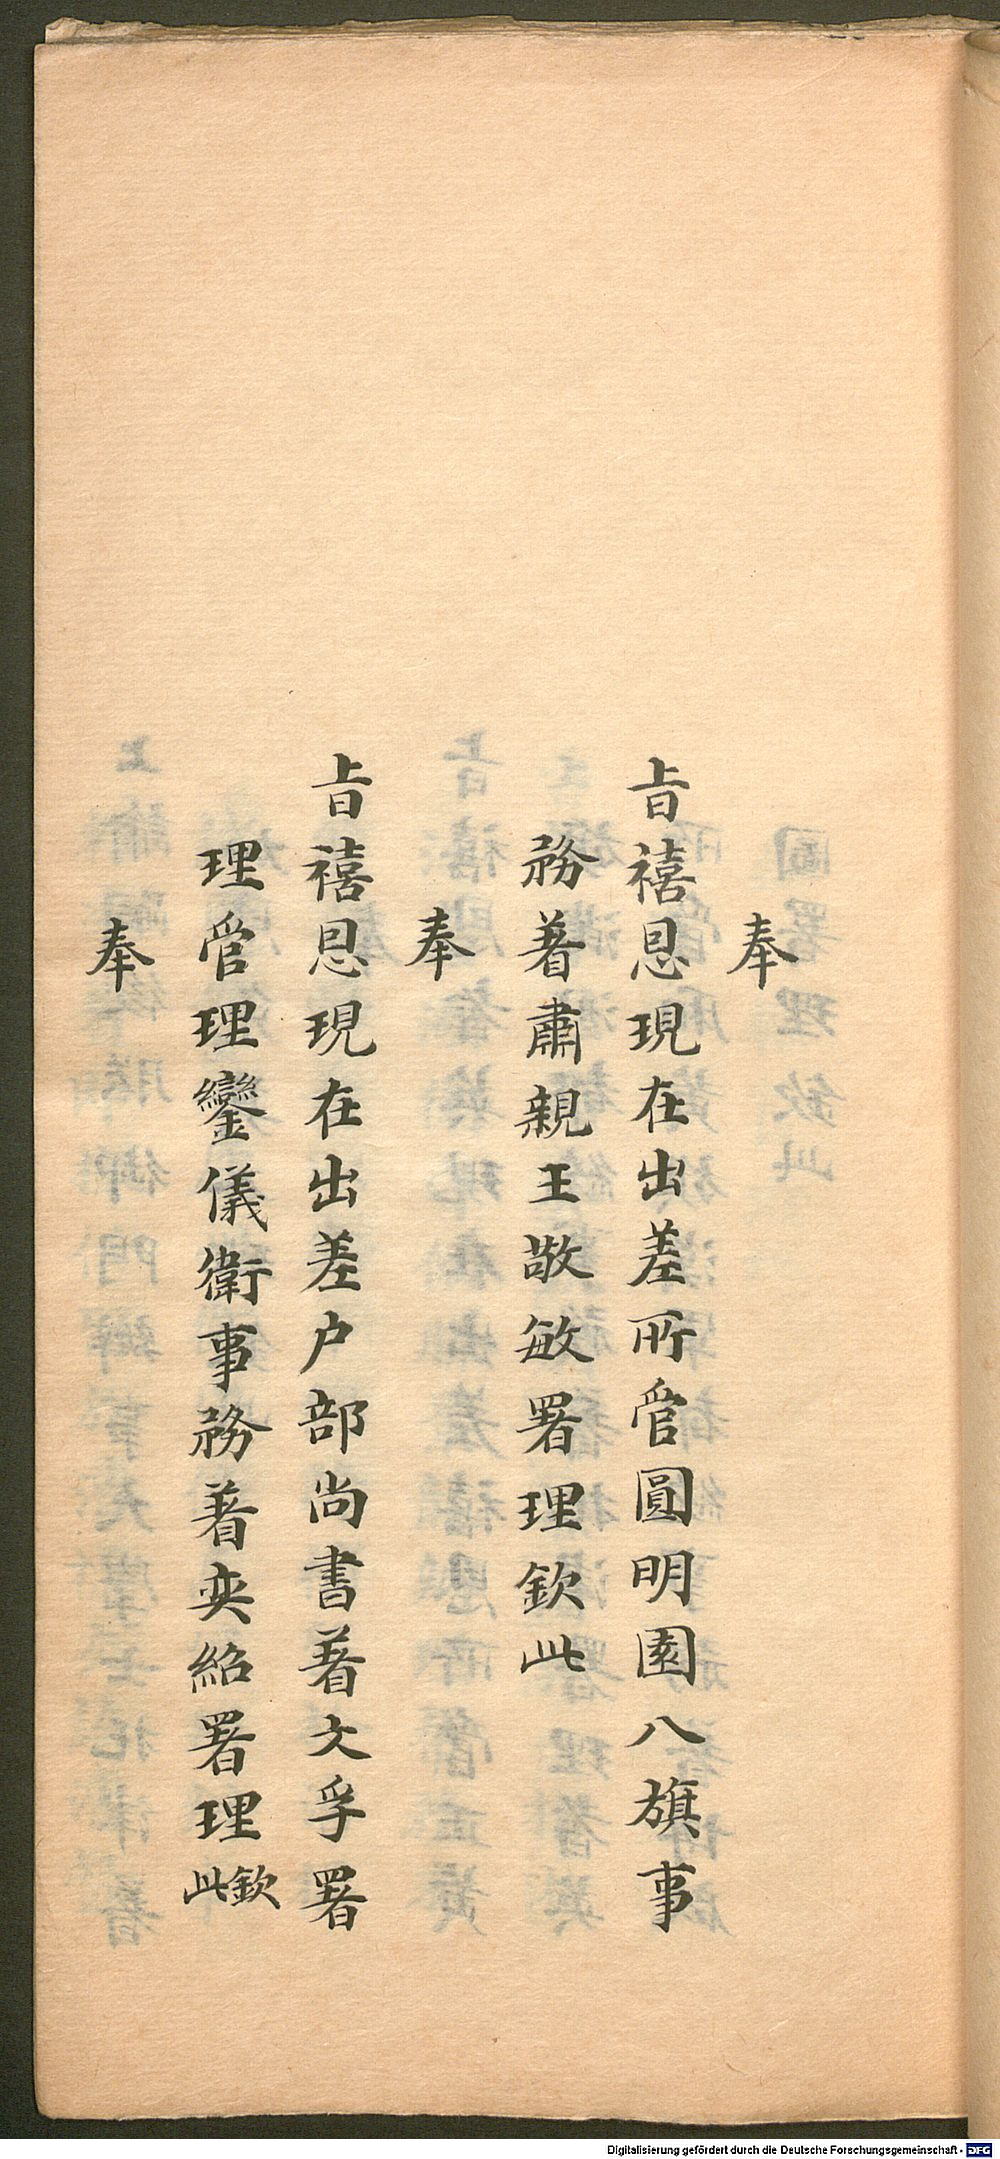 奉
旨禧恩現在出差所管圓明園八旗事
務著肅親王敬敏署理欽此
奉
旨禧恩現在出差户部尚書著文孚署
理管理鑾儀衛事務著奕紹署理欽此
奉
Digitalisierung gefördert durch die Deutsche Forschungsgemeinschaft - DFG